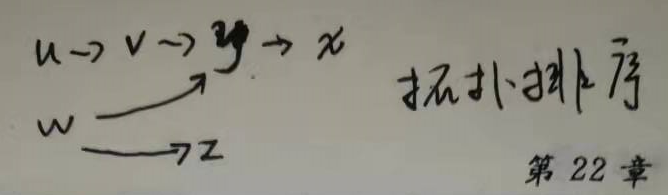 u → v → y → x
拓扑排序
w
→ z
第 22 章